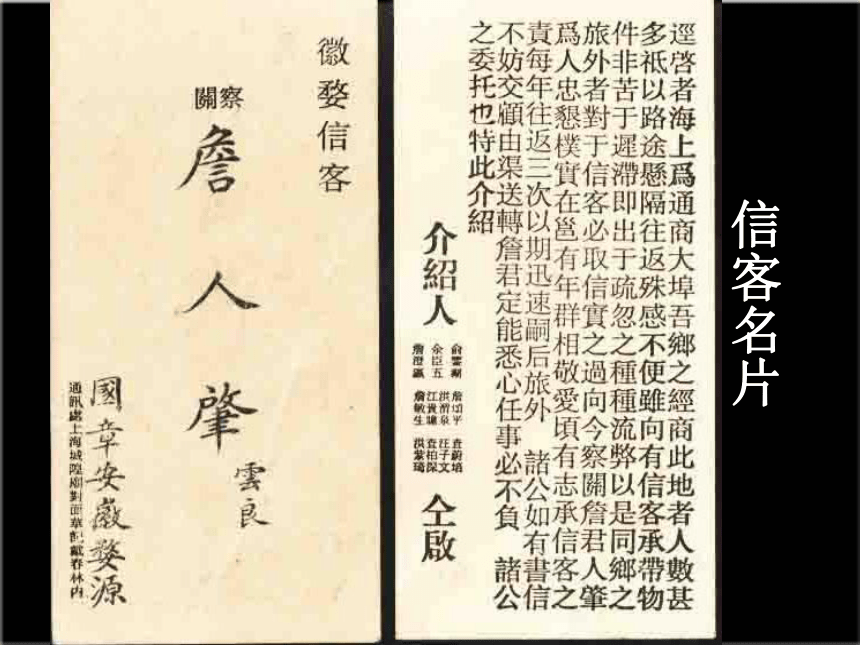 信客名片
逕啓者海上爲通商大埠吾鄉之經商此地者人數甚
多祗以路途懸隔往返殊感不便雖向有信客承帶物
件非苦于遲滯即出于疏忽之種種流弊以是同鄉之
旅外者對于信客必取信實之過向今察關詹君人肇
爲人忠懇樸實在邕有年群相敬愛頃有志承信客之
責每年往返三次以期迅速嗣后旅外 諸公如有書信
不妨交顧由渠送轉詹君定能悉心任事必不負 諸公
之委托也特此介紹
介紹人
余臣五
汪子文
查柏深
詹敏生
仝啟
徽婺信客
關察
詹人肇
雲良
國章安徽婺源
通訊處上海城隍廟對面華記戴春林內